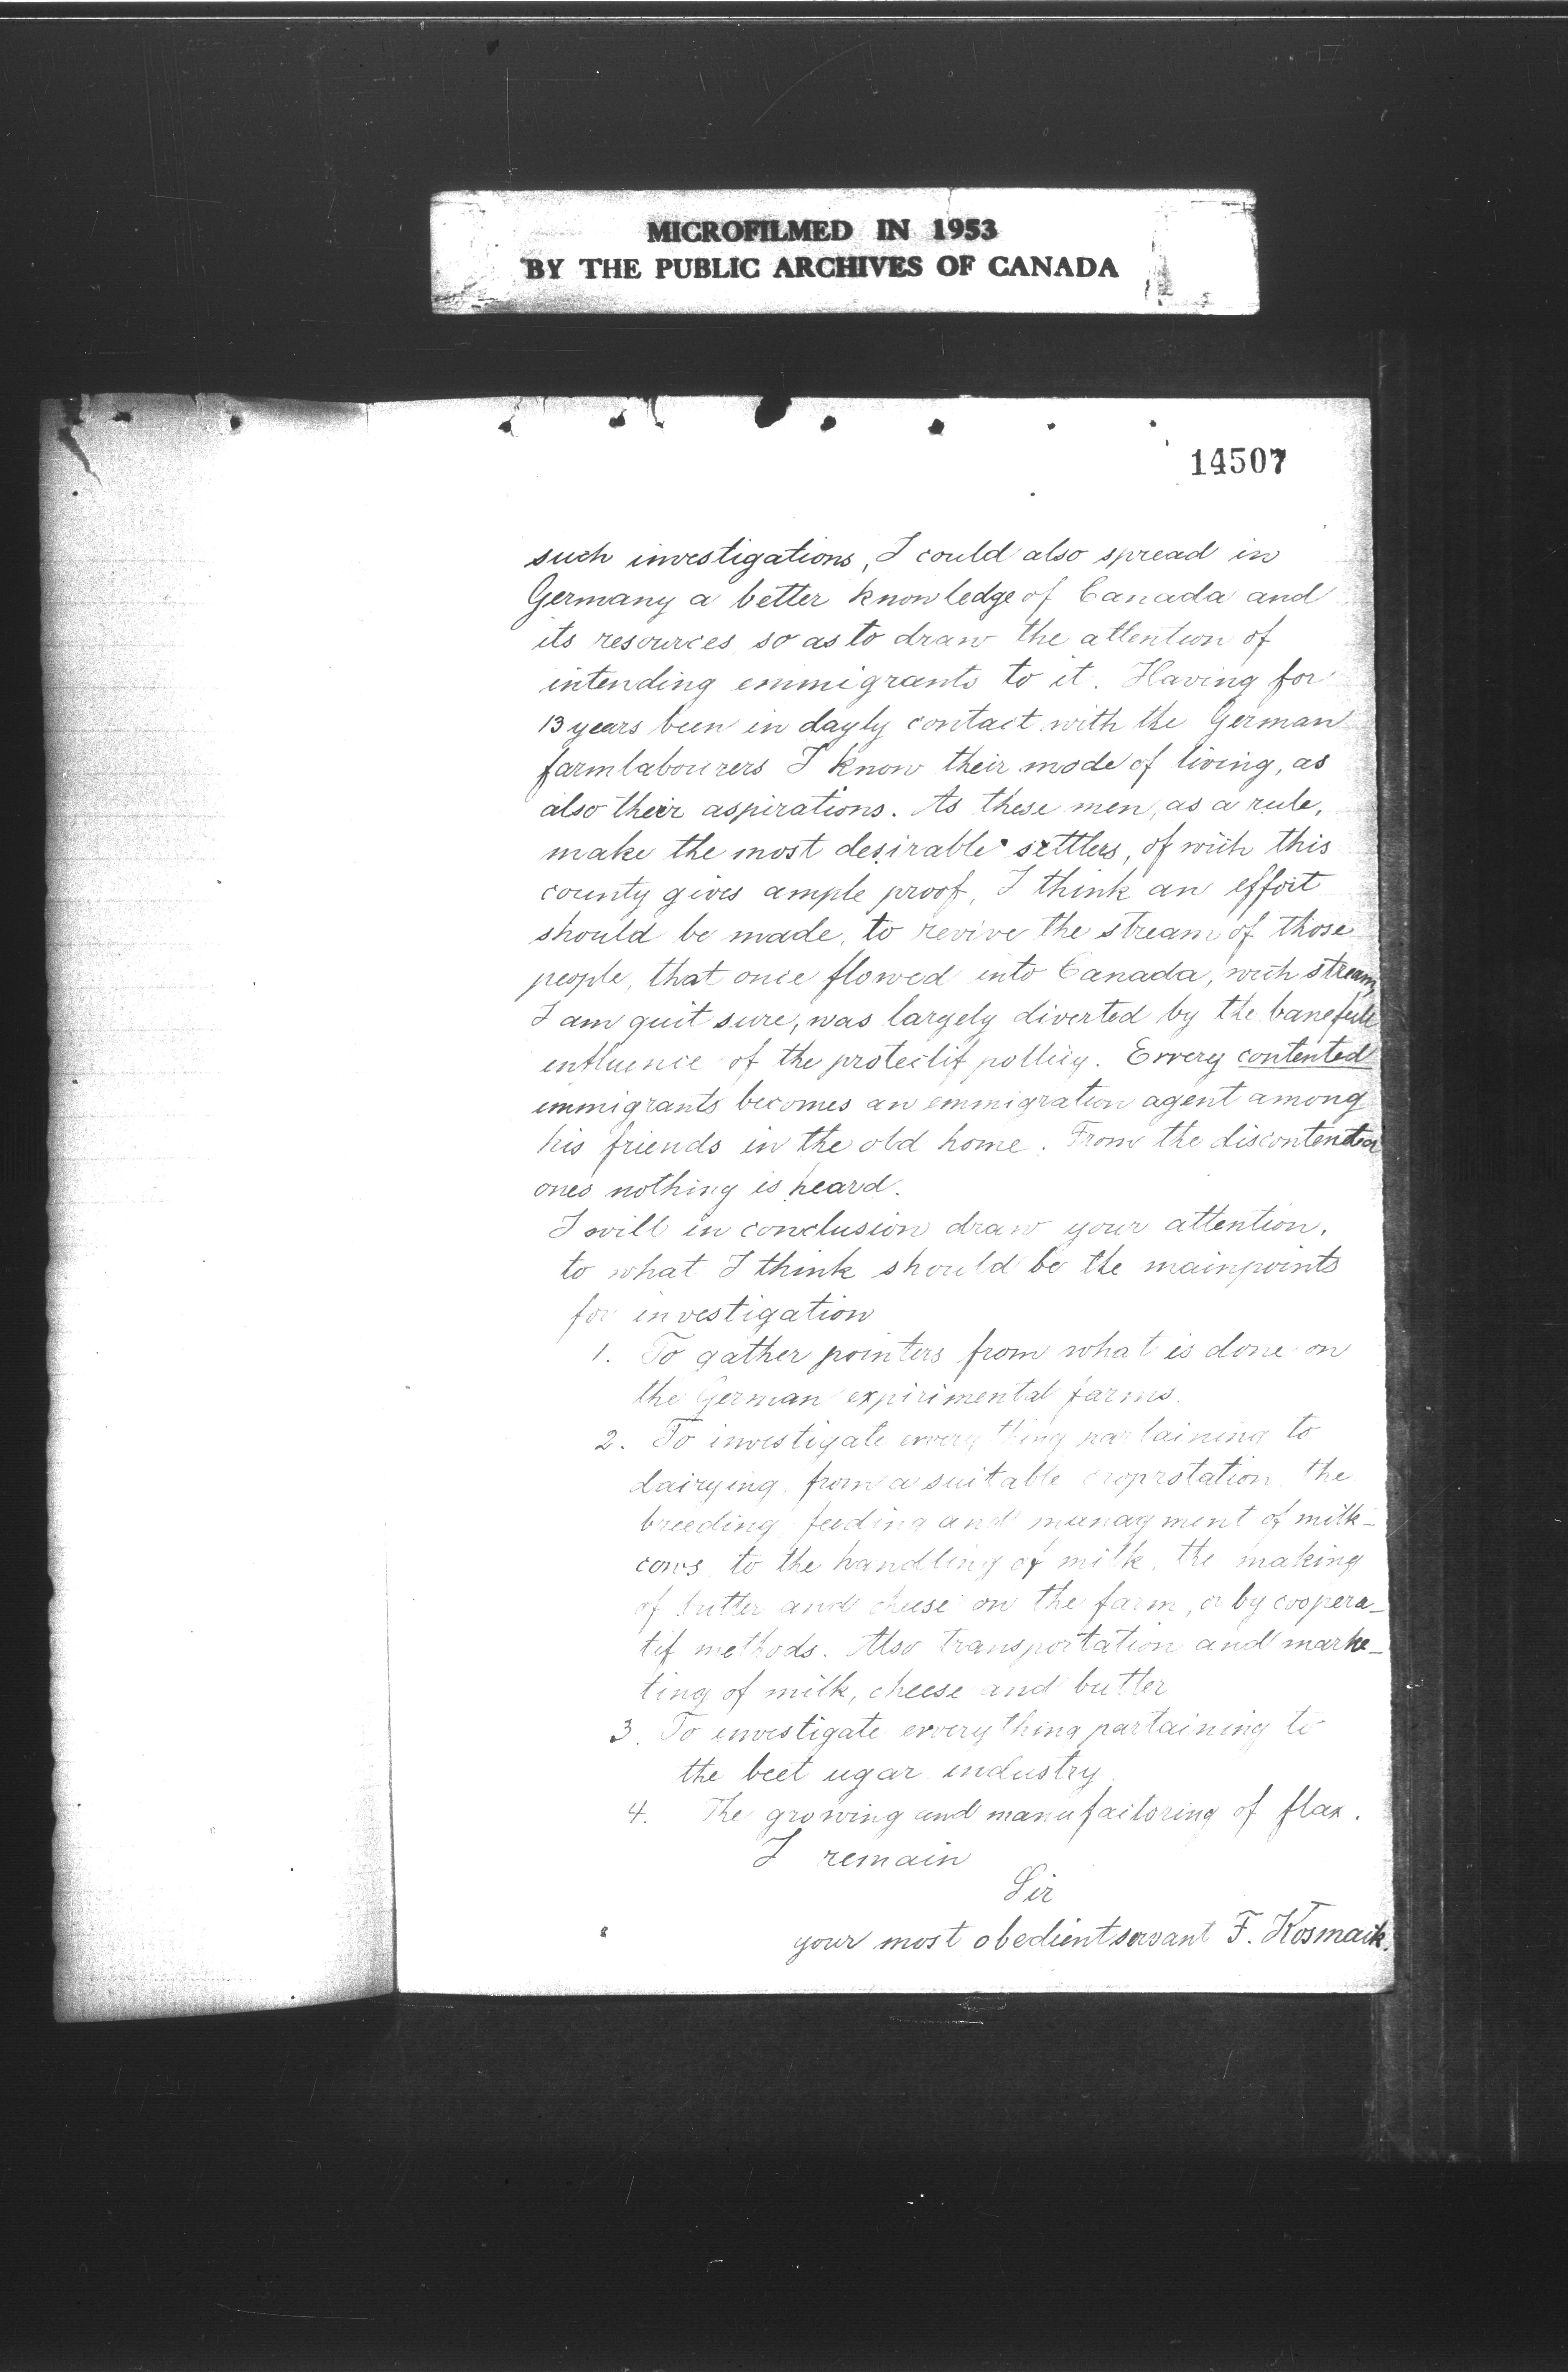 MICROFILMED IN 1953
BY THE PUBLIC ARCHIVES OF CANADA
14507
such investigations, I could also spread in
Germany a better knowledge of Canada and
its resources, so as to draw the attention of
intending emmigrants to it. Having for
13 years been in dayly contact with the German
farmlabourers I know their mode of living, as
also their aspirations. As these men, as a rule,
make the most desirable settlers, of wich this
county gives ample proof, I think an effort
should be made, to revive the stream of those
people, that once flowed into Canada, wich stream,
I am quit sure, was largely diverted by the banefull
influence of the protectif pollicy. Ervery contented
immigrants becomes an emmigration agent among
his friends in the old home. From the discontented
ones nothing is heard.
I will in conclusion draw your attention,
to what I think should be the mainpoints
for investigation
1. To gather pointers from what is done on
the German expirimental farms.
2. To investigate ervery thing partaining to
dairying, from a suitable croprotation, the
breeding, feeding and managment of milk-
cows, to the handling of milk, the making
of butter and cheese on the farm, or by coopera-
tif methods. Also transportation and marke-
ting of milk, cheese and butter
3. To investigate ervery thing partaining to
the beet ugar industry
4. The growing and manufactoring of flax.
I remain
Sir
your most obedient servant F. Kosmack.